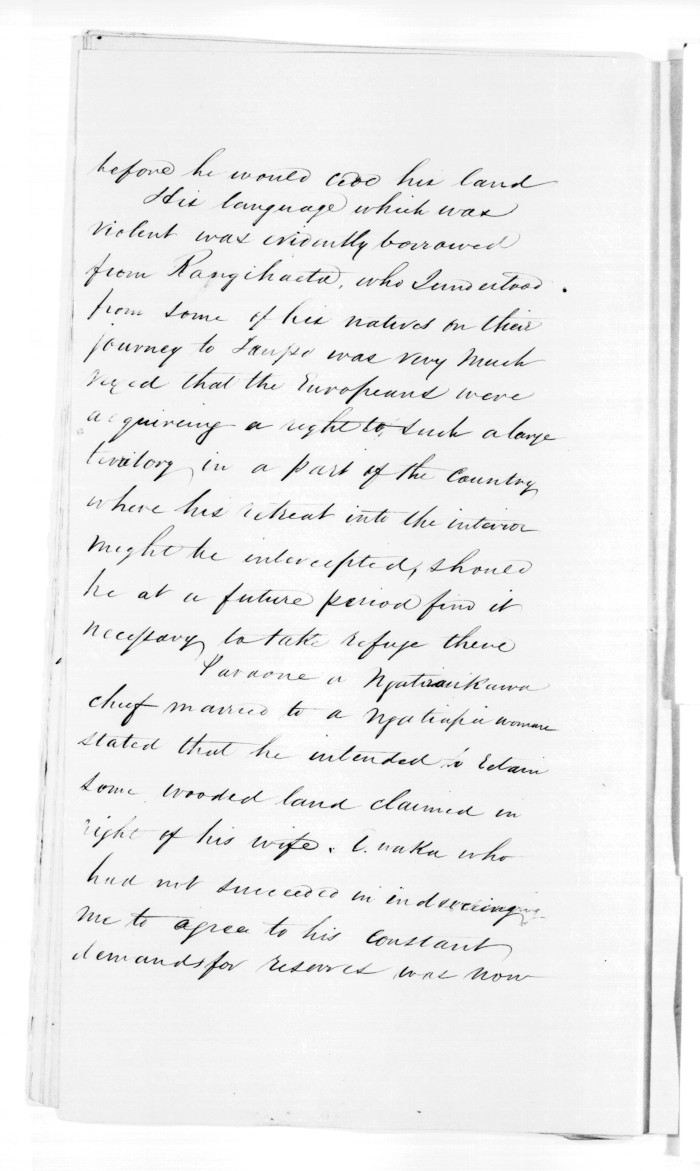 before he would cede his land
His language which was
violent was evidently borrowed
from Rangihaeta, who I understood
from some of his natives on their
journey to Taupo was very much
vexed that the Europeans were
acquiring a right to such a large
territory in a part of the country
where his retreat into the interior
might be intercepted, should
he at a future period find it
necessary to take refuge there
Paraone a Ngatiraukawa
chief married to a Ngatiapa woman
stated that he intended to
some wooded land claimed in
right of his wife. who
had not succeeded in
me to agree to his constant
demands for reserves was now